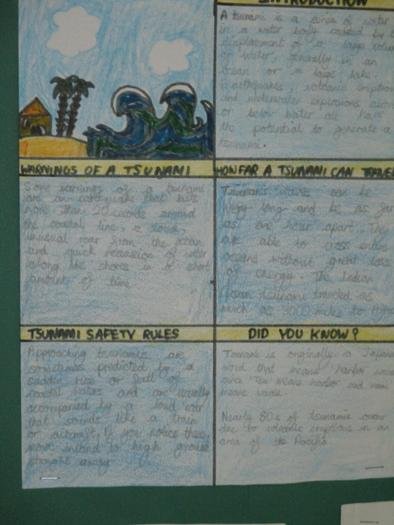 INTRODUCTION
A tsunami is a series of water
in a water body caused by the
displacement of a large volume
of water, generally in an
ocean or a large lake.
Earthquakes, volcanic eruptions
and underwater explosions above
or below water all have
the potential to generate a
tsunami.
WARNINGS OF A TSUNAMI
Some warnings of a tsunami
are an earthquake that lasts
more than 20 seconds around
the coastal line, a loud,
unusual roar from the ocean
and quick recession of water
along the shores in a short
amount of time.
HOW FAR A TSUNAMI CAN TRAVEL
Tsunamis waves can be
very long and be as far
as an hour apart. They
are able to cross entire
oceans without great loss
of energy. The Indian
Ocean tsunami traveled as
much as 3000 miles to
TSUNAMI SAFETY RULES
Approaching tsunamis are
sometimes predicted by a
sudden rise or fall of
coastal waters and are usually
acompanied by a loud roar
that sounds like a train
or aircraft. If you notice this,
move inland to high ground
straight away.
DID YOU KNOW?
Tsunami is originally a Japanese
word that means harbor wave
and Tsu means harbor and nami
means wave.
Nearly 80% of tsunamis occur
due to volcanic eruptions in an
area of the Pacific